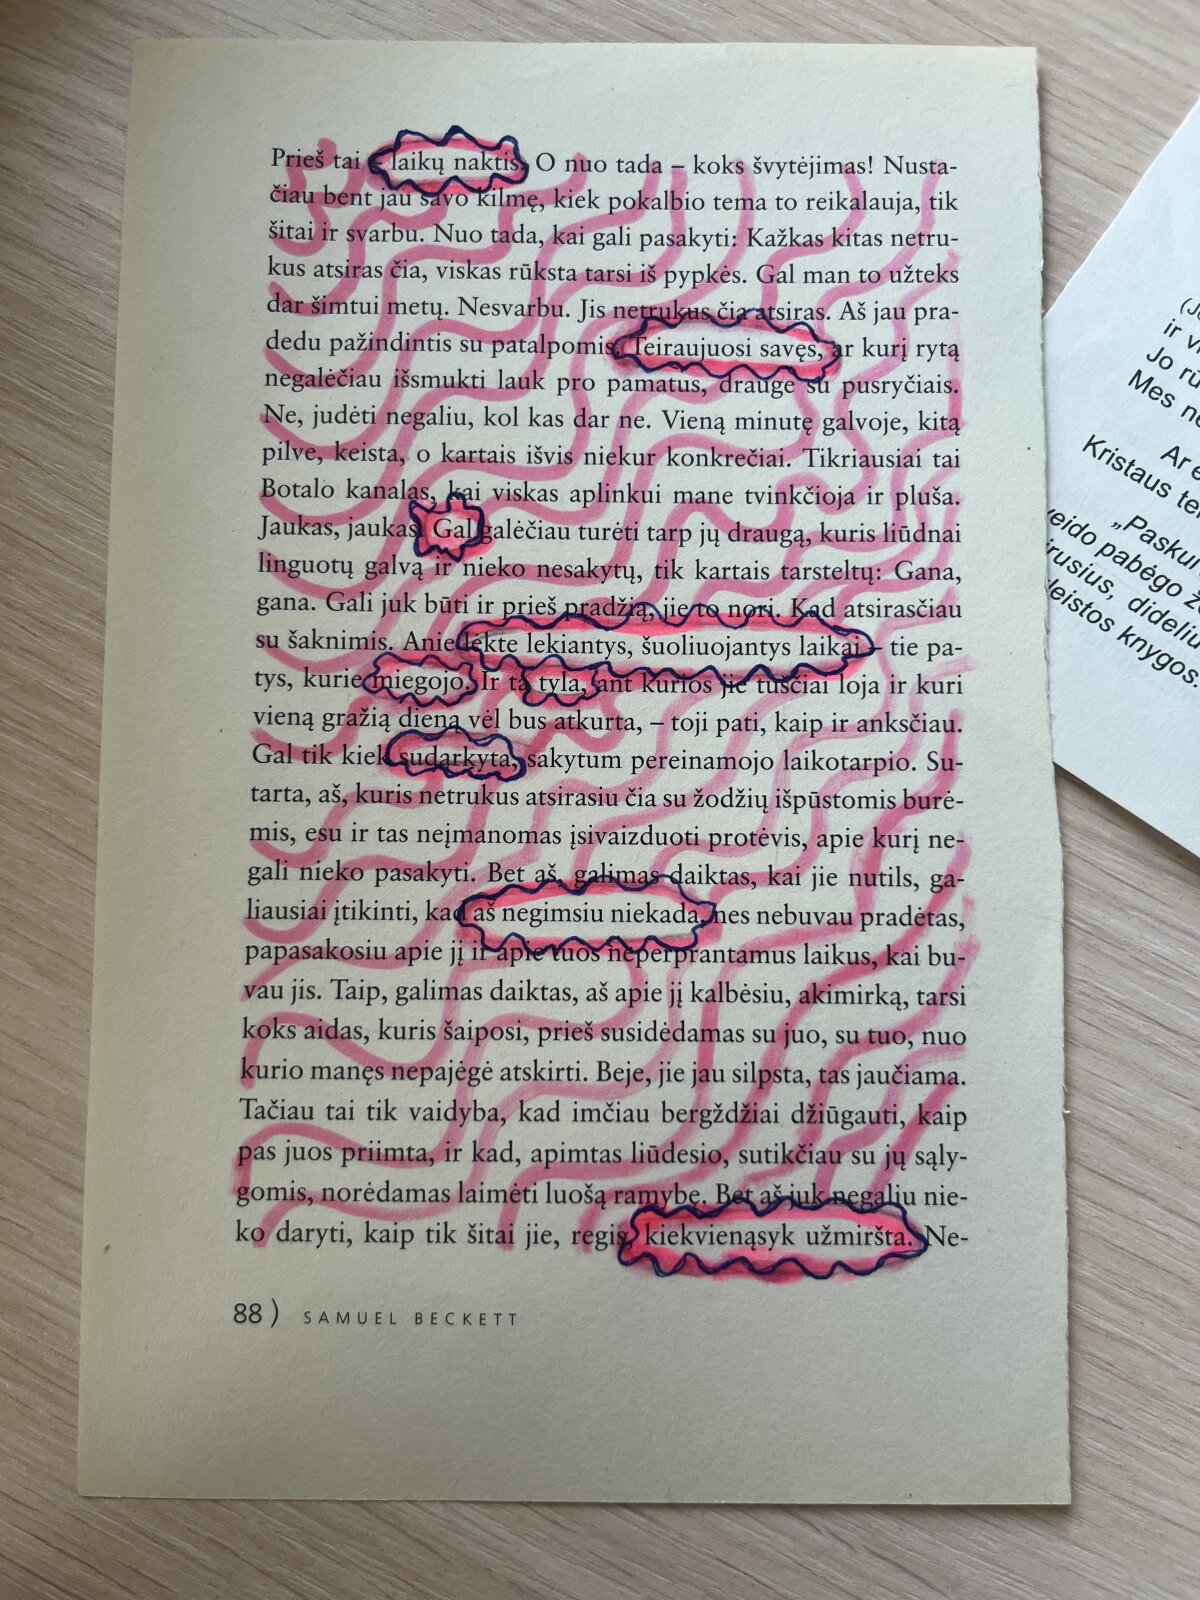 Prieš tai – laikų naktis. O nuo tada – koks švytėjimas! Nusta-
čiau bent jau savo kilmę, kiek pokalbio tema to reikalauja, tik
šitai ir svarbu. Nuo tada, kai gali pasakyti: Kažkas kitas netru-
kus atsiras čia, viskas rūksta tarsi iš pypkės. Gal man to užteks
dar šimtui metų. Nesvarbu. Jis netrukus čia atsiras. Aš jau pra-
dedu pažindintis su patalpomis. Teiraujuosi savęs, ar kurį rytą
negalėčiau išsmukti lauk pro pamatus, drauge su pusryčiais.
Ne, judėti negaliu, kol kas dar ne. Vieną minutę galvoje, kitą
pilve, keista, o kartais išvis niekur konkrečiai. Tikriausiai tai
Botalo kanalas, kai viskas aplinkui mane tvinkčioja ir pluša.
Jaukas, jaukas. Gal galėčiau turėti tarp jų draugą, kuris liūdnai
linguotų galvą ir nieko nesakytų, tik kartais tarsteltų: Gana,
gana. Gali juk būti ir prieš pradžią, jie to nori. Kad atsirasčiau
su šaknimis. Anie lėkte lekiantys, šuoliuojantys laikai – tie pa-
tys, kurie miegojo. Ir ta tyla, ant kurios jie tuščiai loja ir kuri
vieną gražią dieną vėl bus atkurta, – toji pati, kaip ir anksčiau.
Gal tik kiek sudarkyta, sakytum pereinamojo laikotarpio. Su-
tarta, aš, kuris netrukus atsirasiu čia su žodžių išpūstomis burė-
mis, esu ir tas neįmanomas įsivaizduoti protėvis, apie kurį ne-
gali nieko pasakyti. Bet aš, galimas daiktas, kai jie nutils, ga-
liausiai įtikinti, kad aš negimsiu niekada, nes nebuvau pradėtas,
papasakosiu apie jį ir apie tuos neperprantamus laikus, kai bu-
vau jis. Taip, galimas daiktas, aš apie jį kalbėsiu, akimirką, tarsi
koks aidas, kuris šaiposi, prieš susidėdamas su juo, su tuo, nuo
kurio manęs nepajėgė atskirti. Beje, jie jau silpsta, tas jaučiama.
Tačiau tai tik vaidyba, kad imčiau bergždžiai džiūgauti, kaip
pas juos priimta, ir kad, apimtas liūdesio, sutikčiau su jų sąly-
gomis, norėdamas laimėti luošą ramybę. Bet aš juk negaliu nie-
ko daryti, kaip tik šitai jie, regis, kiekvienąsyk užmiršta. Ne-
88) SAMUEL BECKETT
ir
Jo
Mes
Ar
Kristaus
„Paskui
pabėgo
didelių
knygos.